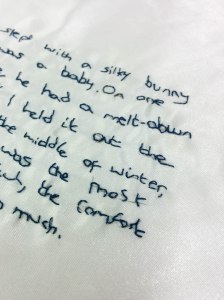 slept with a silky bunny
was a baby. On one
he had a melt-down
I held it out the
the middle of winter,
was the most
the comfort
much.